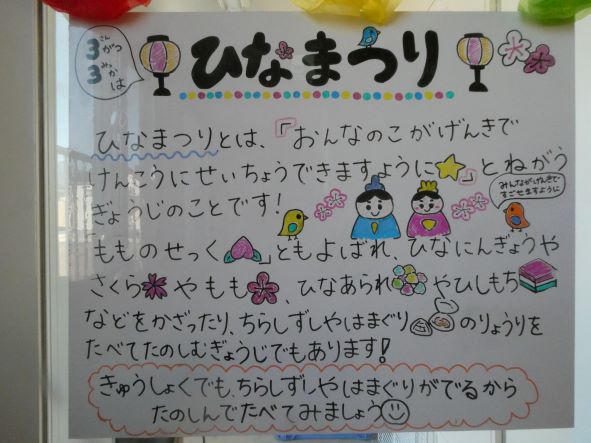 3がつ
さん
3かは
みっ
ひなまつり
ひなまつりとは、「おんなのこがげんきで
けんこうにせいちょうできますように」とねがう
ぎょうじのことです!
みんながげんきで
すごせますように
もものせっく」ともよばれ、ひなにんぎょうや
さくらやもも、ひなあられやひしもち
などをかざったり、ちらしずしやはまぐりのりょうりを
たべてたのしむぎょうじでもあります!
きゅうしょくでも、ちらしずしやはまぐりがでるから
たのしんでたべてみましょう